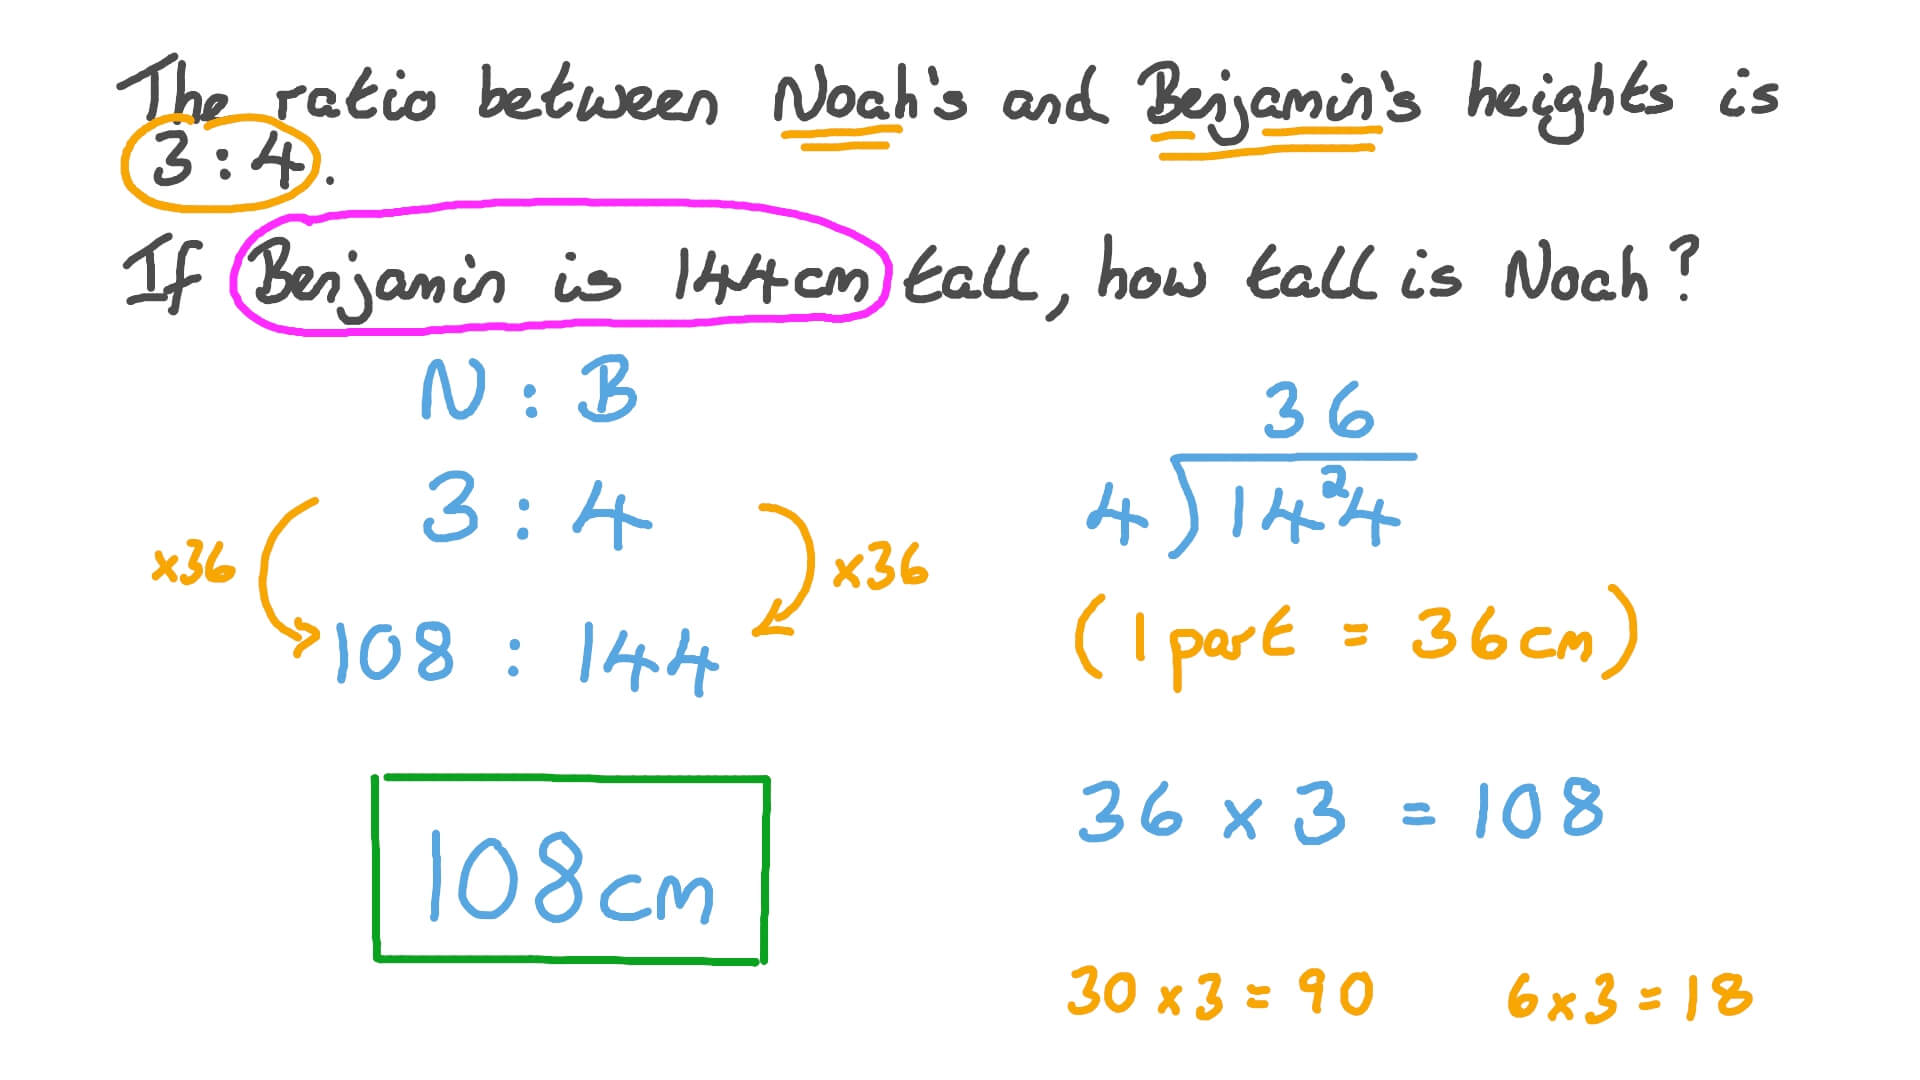 The ratio between Noah's and Benjamin's heights is
3 : 4.
If Benjamin is 144cm tall, how tall is Noah?
N : B
3 : 4
x36
x36
108 : 144
108cm
36
4 14²4
(1 part = 36cm)
36 x 3 = 108
30 x 3 = 90
6 x 3 = 18